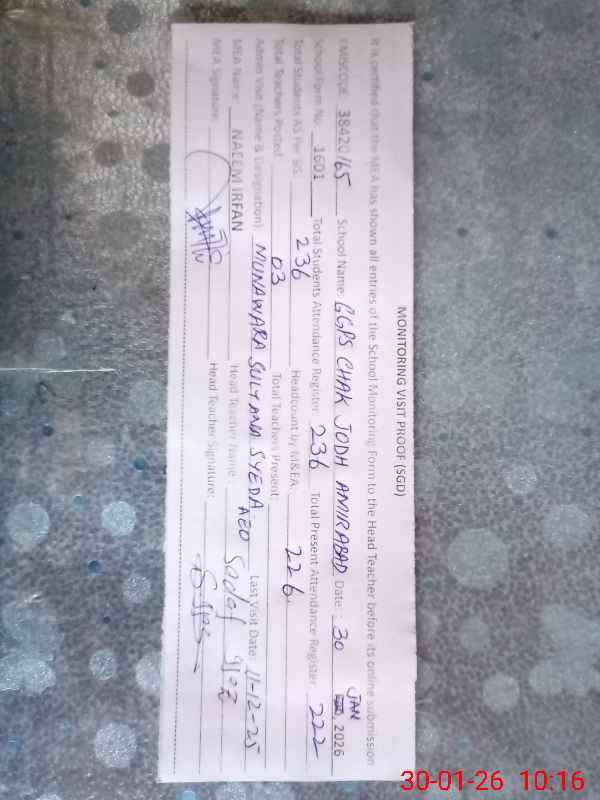 MONITORING VISIT PROOF (SGD)
It is certified that the MEA has shown all entries of the School Monitoring Form to the Head Teacher before its online submission
EMISCODE 38420165 School Name: GGPS CHAK JODH AMIRABAD Date: 30 JAN, 2026
School Form No 1601 Total Students Attendance Register: 236 Total Present Attendance Register 222
Total Students AS Per SIS: 236 Headcount by M&EA: 226
Total Teachers Posted: 03 Total Teachers Present:
Admin Visit (Name & Designation): MUNAWARA SULTANA SYEDA AEO Last Visit Date: 11-12-25
MEA Name: NAEEM IRFAN Head Teacher Name: Sadaf
MEA Signature: Head Teacher Signature:
30-01-26 10:16